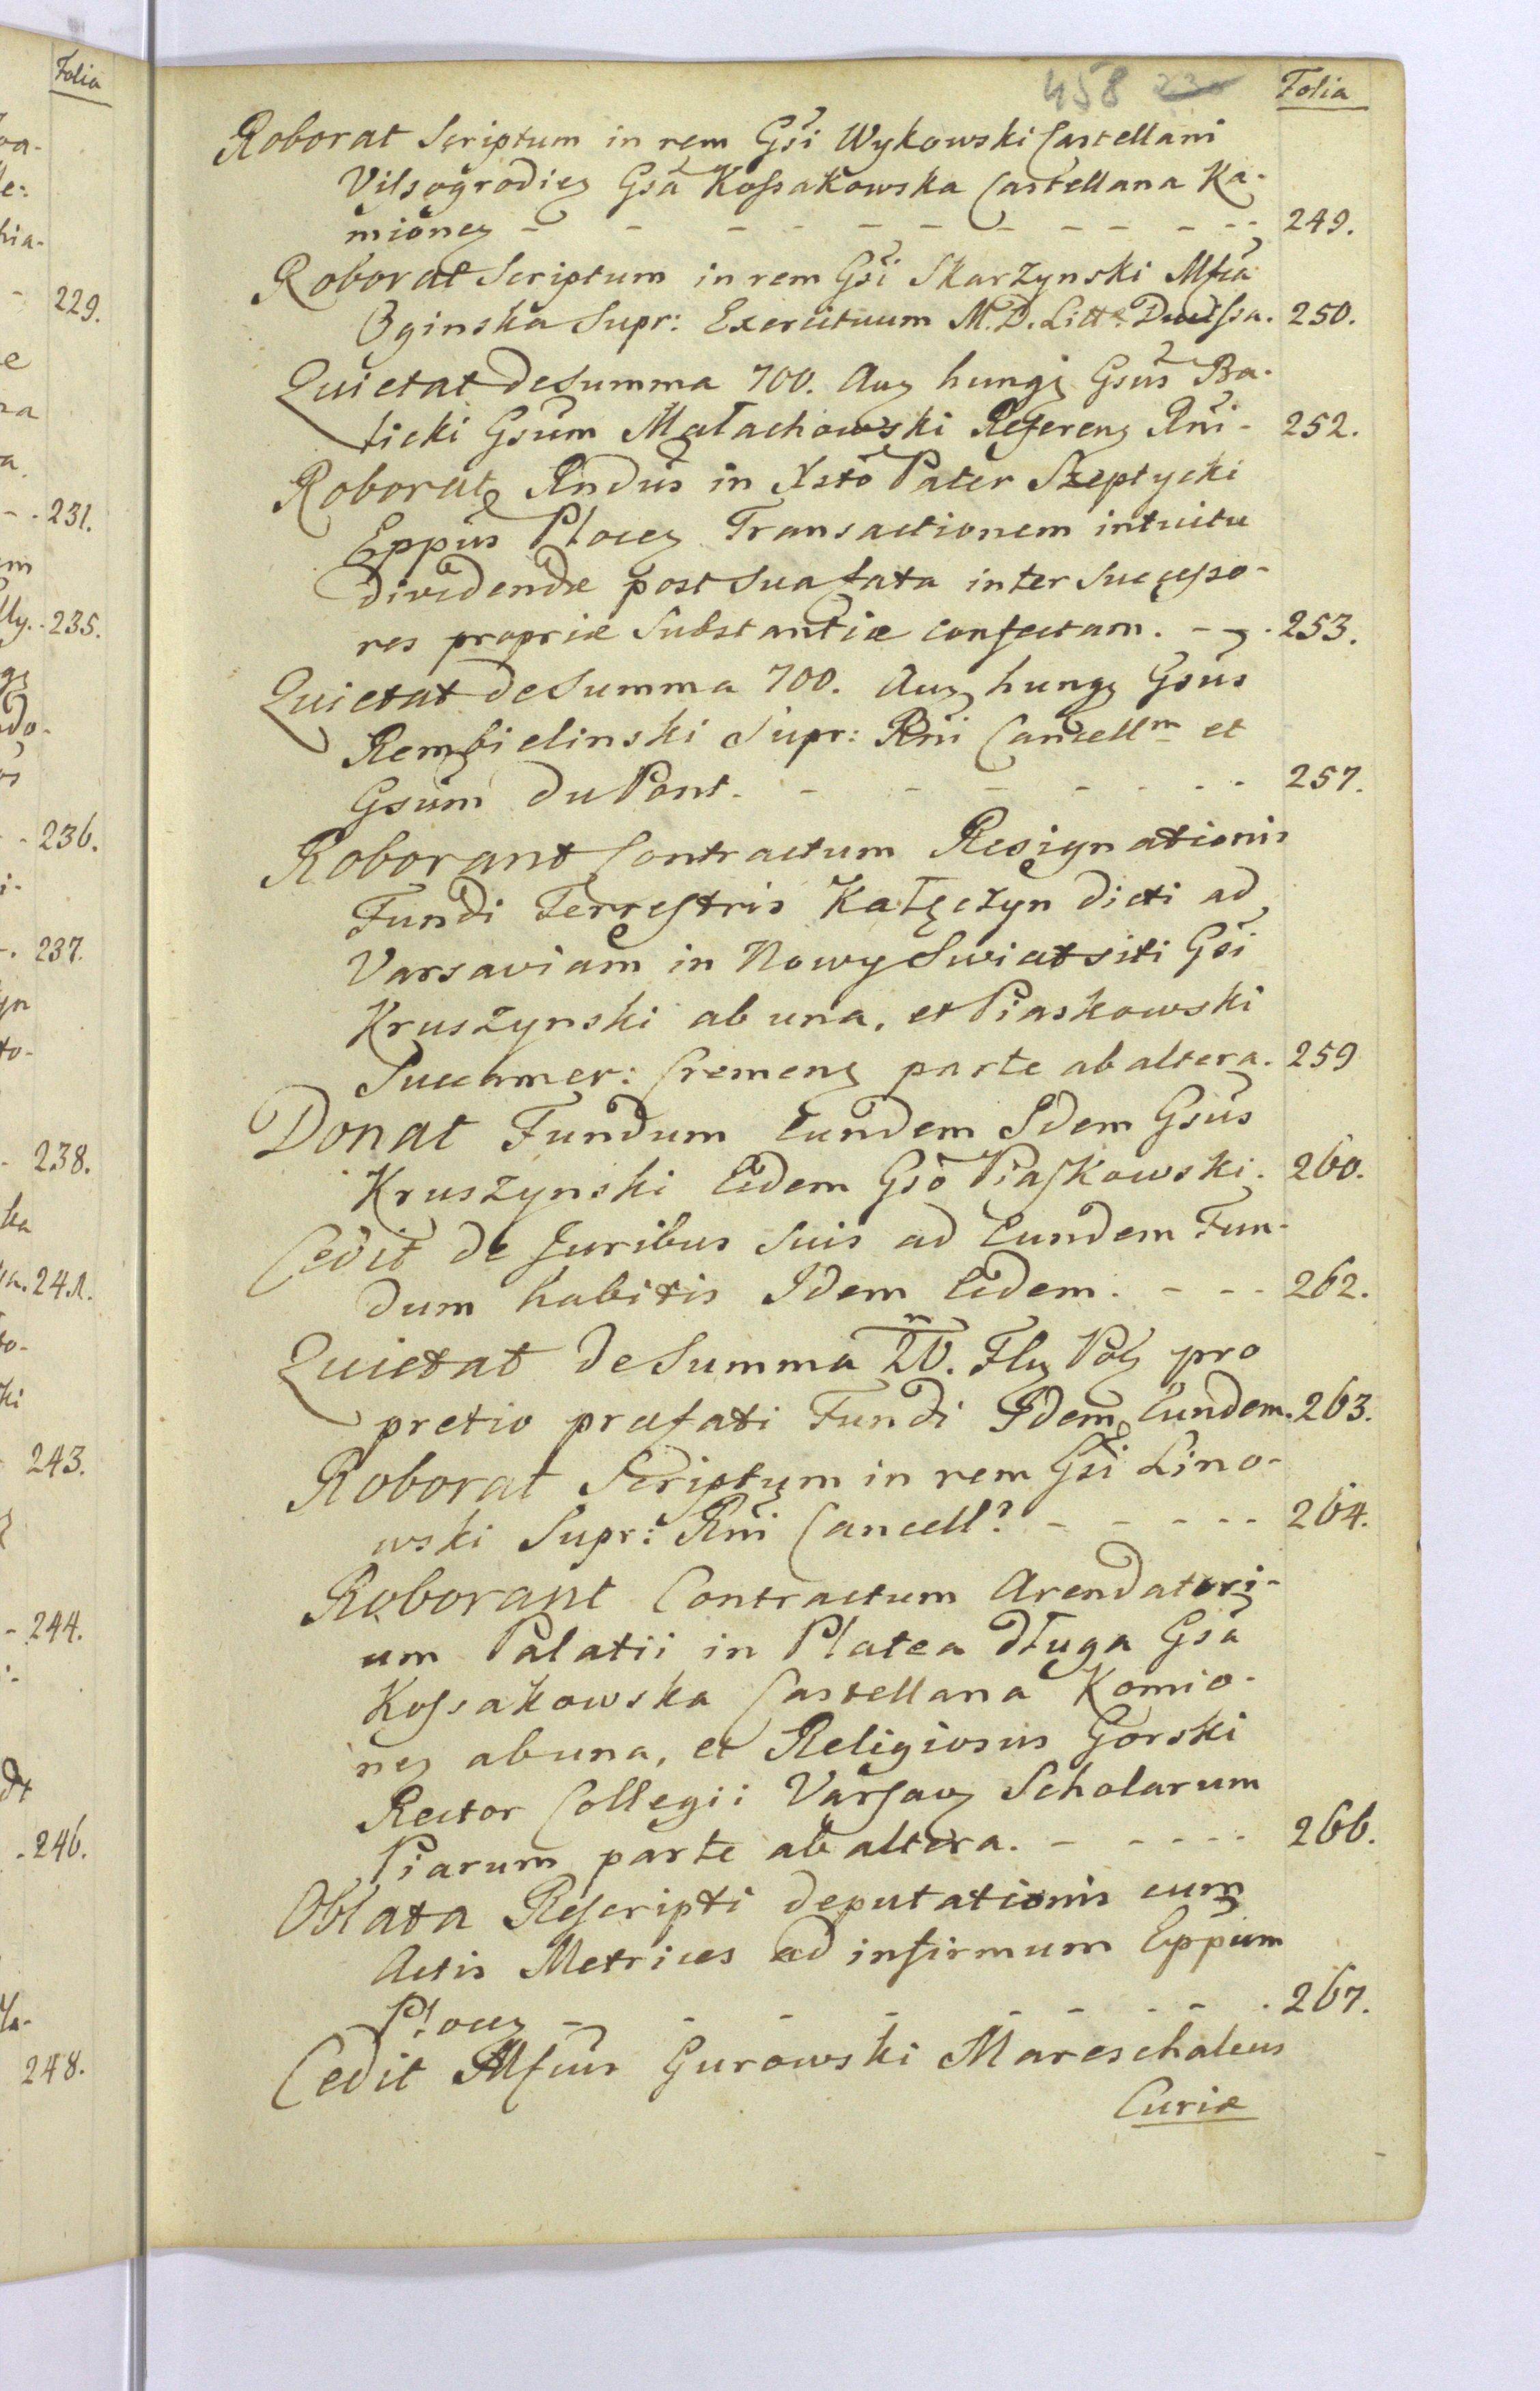 458 230
Folia
Roborat Scriptum in rem Gsi Wykowski Castellani
Vilsogrodien Gsa Kossakowska Castellana Ka-
mionen - - - - - - - - - - - 249.
Roborat Scriptum in rem Gsi Skarzynski Mfca
Oginska Supr: Exercituum M. D. Litt: Ducissa. 250.
Quietat de Summa 700. Aug hung Gsus Ba-
licki Gsum Małachowski Referen Rni - 252.
Roborat Rndus in Xsto Pater Szeptycki
Eppus Plocen Transactionem intuitu
dividendæ post sua fata inter Successo-
res propriæ Substantiæ confectam. - - . 253.
Quietat de Summa 700. Aug hung Gsus
Rembielinski Supr: Rni Cancell et
Gsum du Pont. - - - - - - - 257.
Roborant Contractum Resignationis
Fundi Terrestris Kałęczyn dicti ad
Varsaviam in Nowy Swiat siti Gsi
Kruszynski ab una, et Piaskowski
Succamer: Cremen parte ab altera. 259
Donat Fundum Eundem Idem Gsus
Kruszynski Eidem Gso Piaskowski. 260.
Cedit de Juribus Suis ad Eundem Fun-
dum habitis Idem Eidem. - - - 262.
Quietat de Summa 20. Fln Pol pro
pretio præfati Fundi Idem Eundem. 263.
Roborat Scriptum in rem Gsi Lino-
wski Supr: Rni Cancell? - - - - - 264.
Roborant Contractum Arendatori-
um Palatii in Platea długa Gsa
Kossakowska Castellana Komio-
nen ab una, et Religiosus Gorski
Rector Collegii Varsav Scholarum
Piarum parte ab altera. - - - - - 266.
Oblata Rescripti deputationis cum
Actis Metrices ad infirmum Eppum
Plocen - - - - - - - . 267.
Cedit Mfcus Gurowski Mareschalcus
Curiæ
Folia
229.
231.
235.
236.
237.
238.
241.
243.
244.
246.
248.